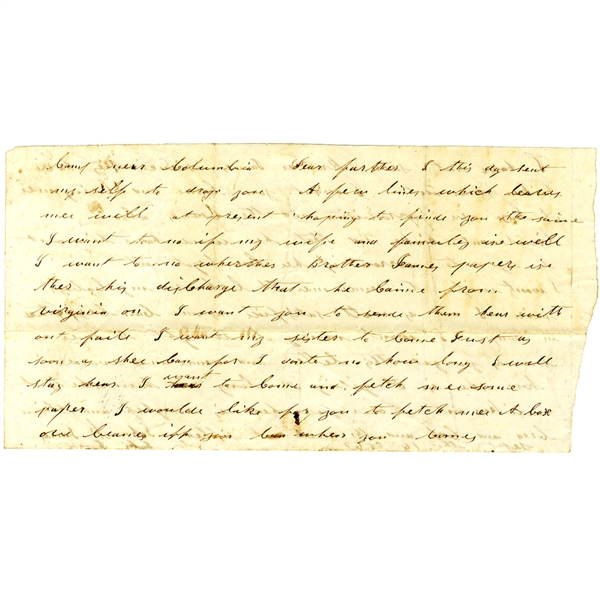 Camp near Columbia Dear farther I this day sent
my self to drop you A few lines which leaves
mee well at present hoping to finde you the saime
I want to no if my wife and family is well
I want to no wherther Brother Jeames papers is
ther his discharge that he Caime from
virginia on I want you to sende them hear with
out faile I want my sister to Come Just as
soon as shee Can for I donte no how long I will
stay hear I want to Come and fetch mee some
paper I woulde like for you to fetch mee A box
ove beanes iff you Can when you Comes